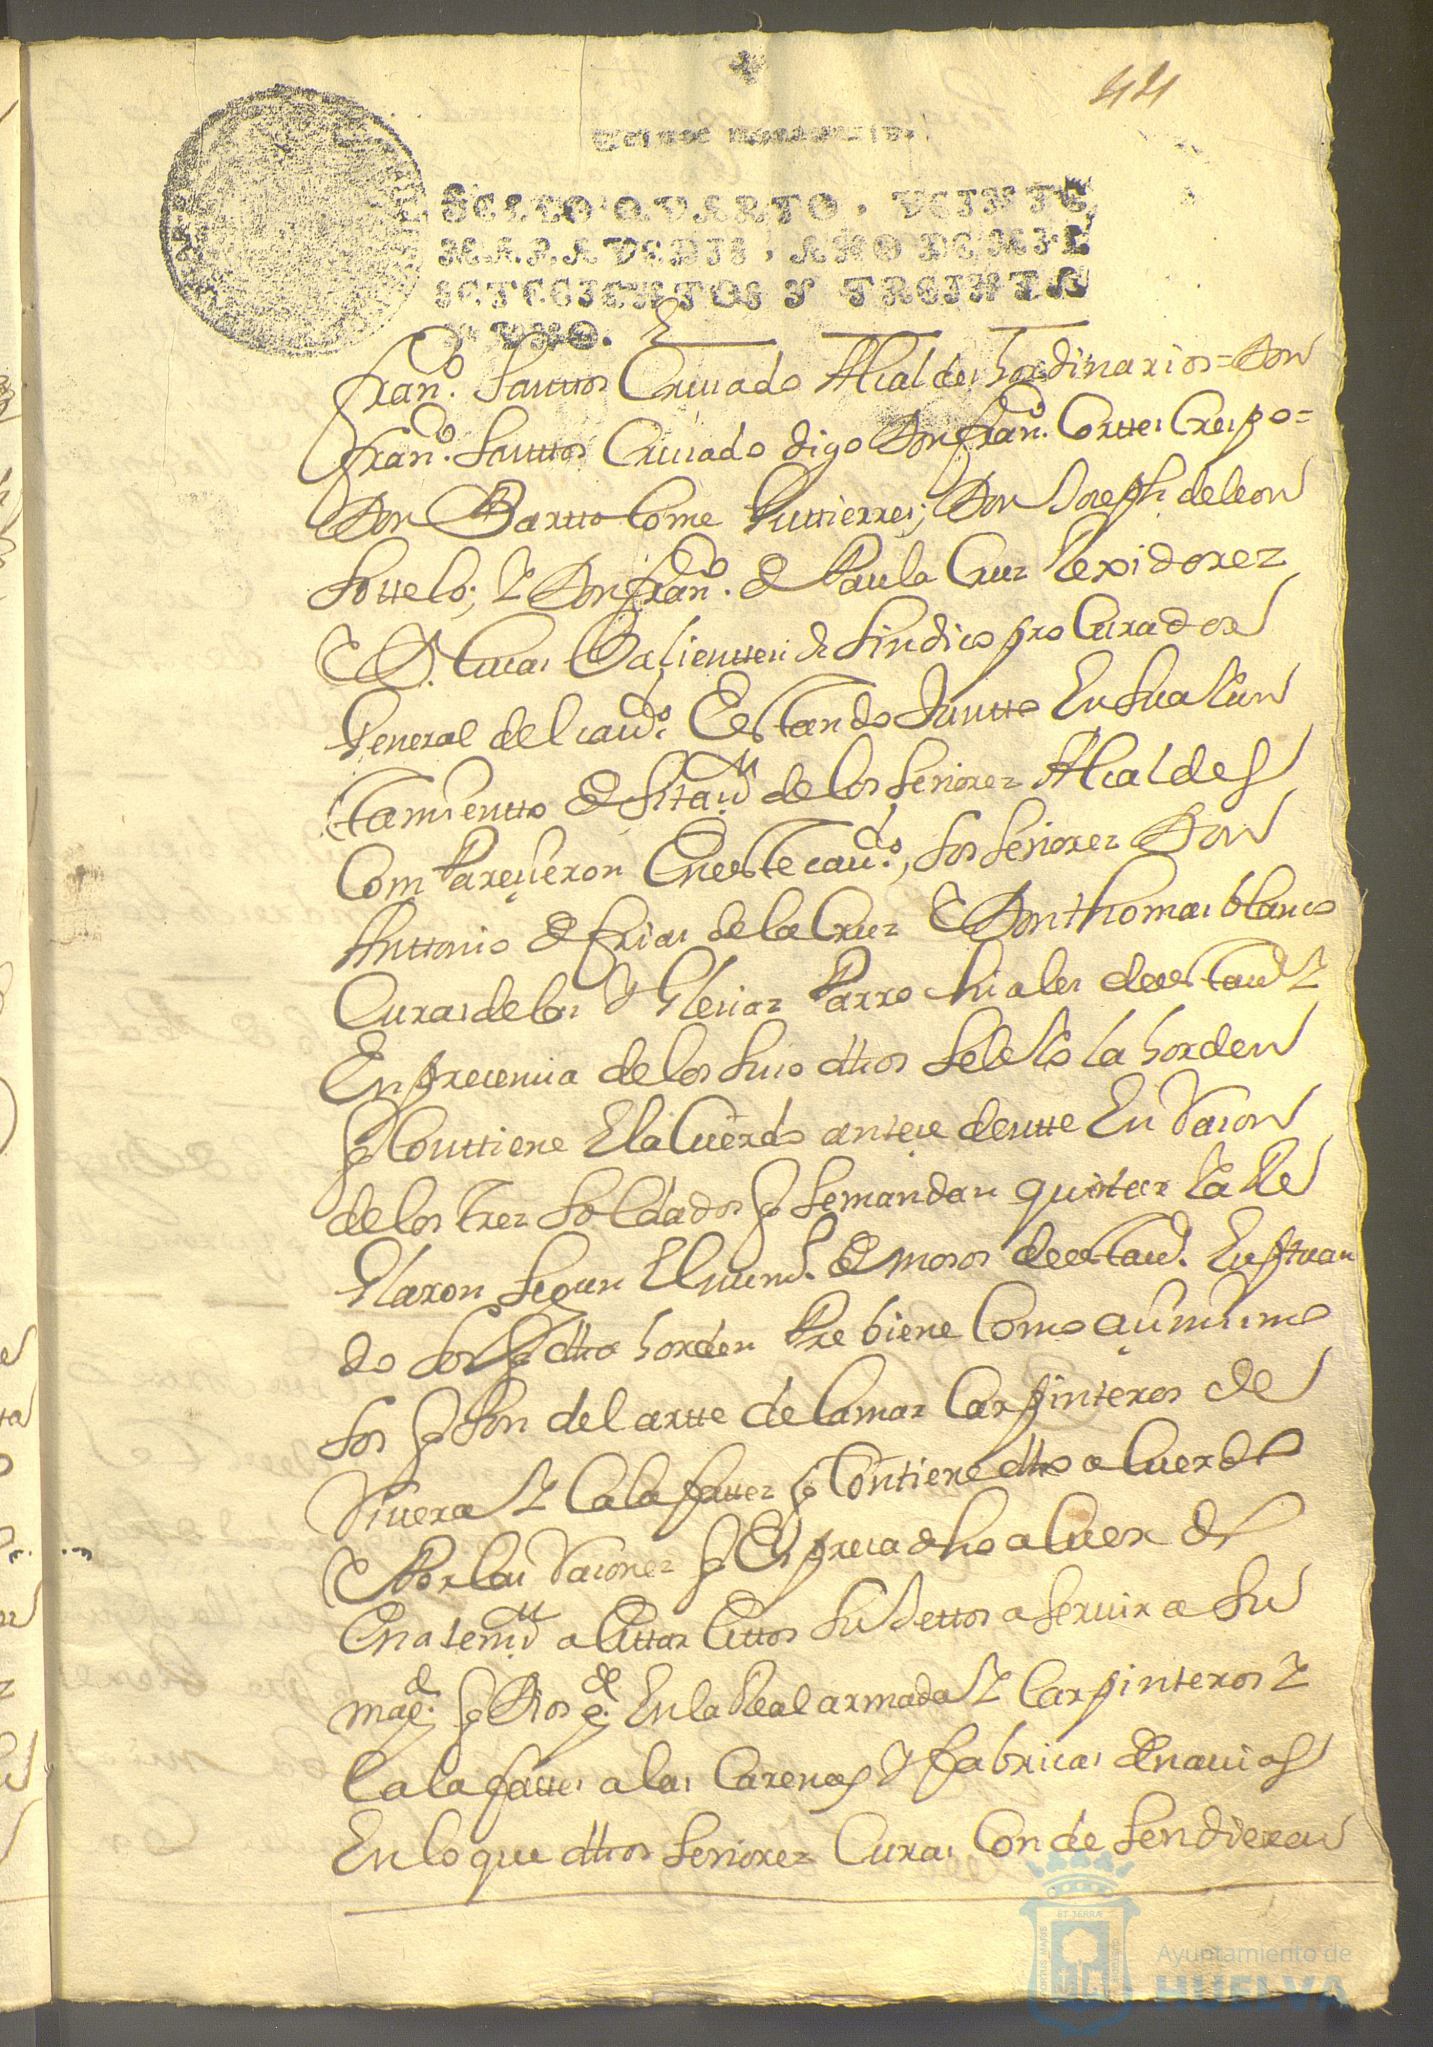 44
Veinte maravedis.
SELLO QVARTO, VEINTE
MARAVEDIS, AÑO DE MIL
SETECIENTOS Y TREINTA
Y VNO.
Fran.co Santtos Criuado Alcaldes hordinarios = Don
Fran.co Santtos Criuado digo Don Fran.co Corttes Crespo =
Don Barttolome Guttierres; Don Joseph de leon
Sottelo; Y Don Fran.co de Paula Cruz Rexidorez
E D. Lucas Balientte sindico procurador
General del cau.do Estando Juntto En su aiun
tamientto de sitaz.n de los señorez Alcaldes
Comparezieron En este cau.do, los señorez Don
Anttonio de frias de la Cruz E Don thomas blanco
Curas de las Yglesias Parrochiales de esta uª Y
En presencia de los suso dhos se leio la horden
q Conttiene El aCuerdo antezedentte En Razon
de los trez soldados q se mandan quintar Para Re
Glaron segun El num.o de mosos de esta uª. Enstran
do los q dha horden Prebiene Como asimismo
los q son del artte de la mar Carpinteros de
Riuera Y Calafattez q Contiene dho aCuerdo
E Por las Razonez q Espresa dho aCuerdo
En atenz.n a Estar Estos sujettos a seruir a su
mag.d q Dios g.de En la Real armada Y Carpinteros Y
Calafattes a las Carenas Y fabricas de nauios
En lo que dhos señorez Curas Condesendieron
Ayuntamiento de
HUELVA